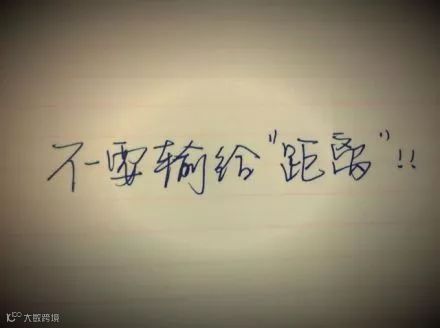 不要输给"距离"!!
大数跨境